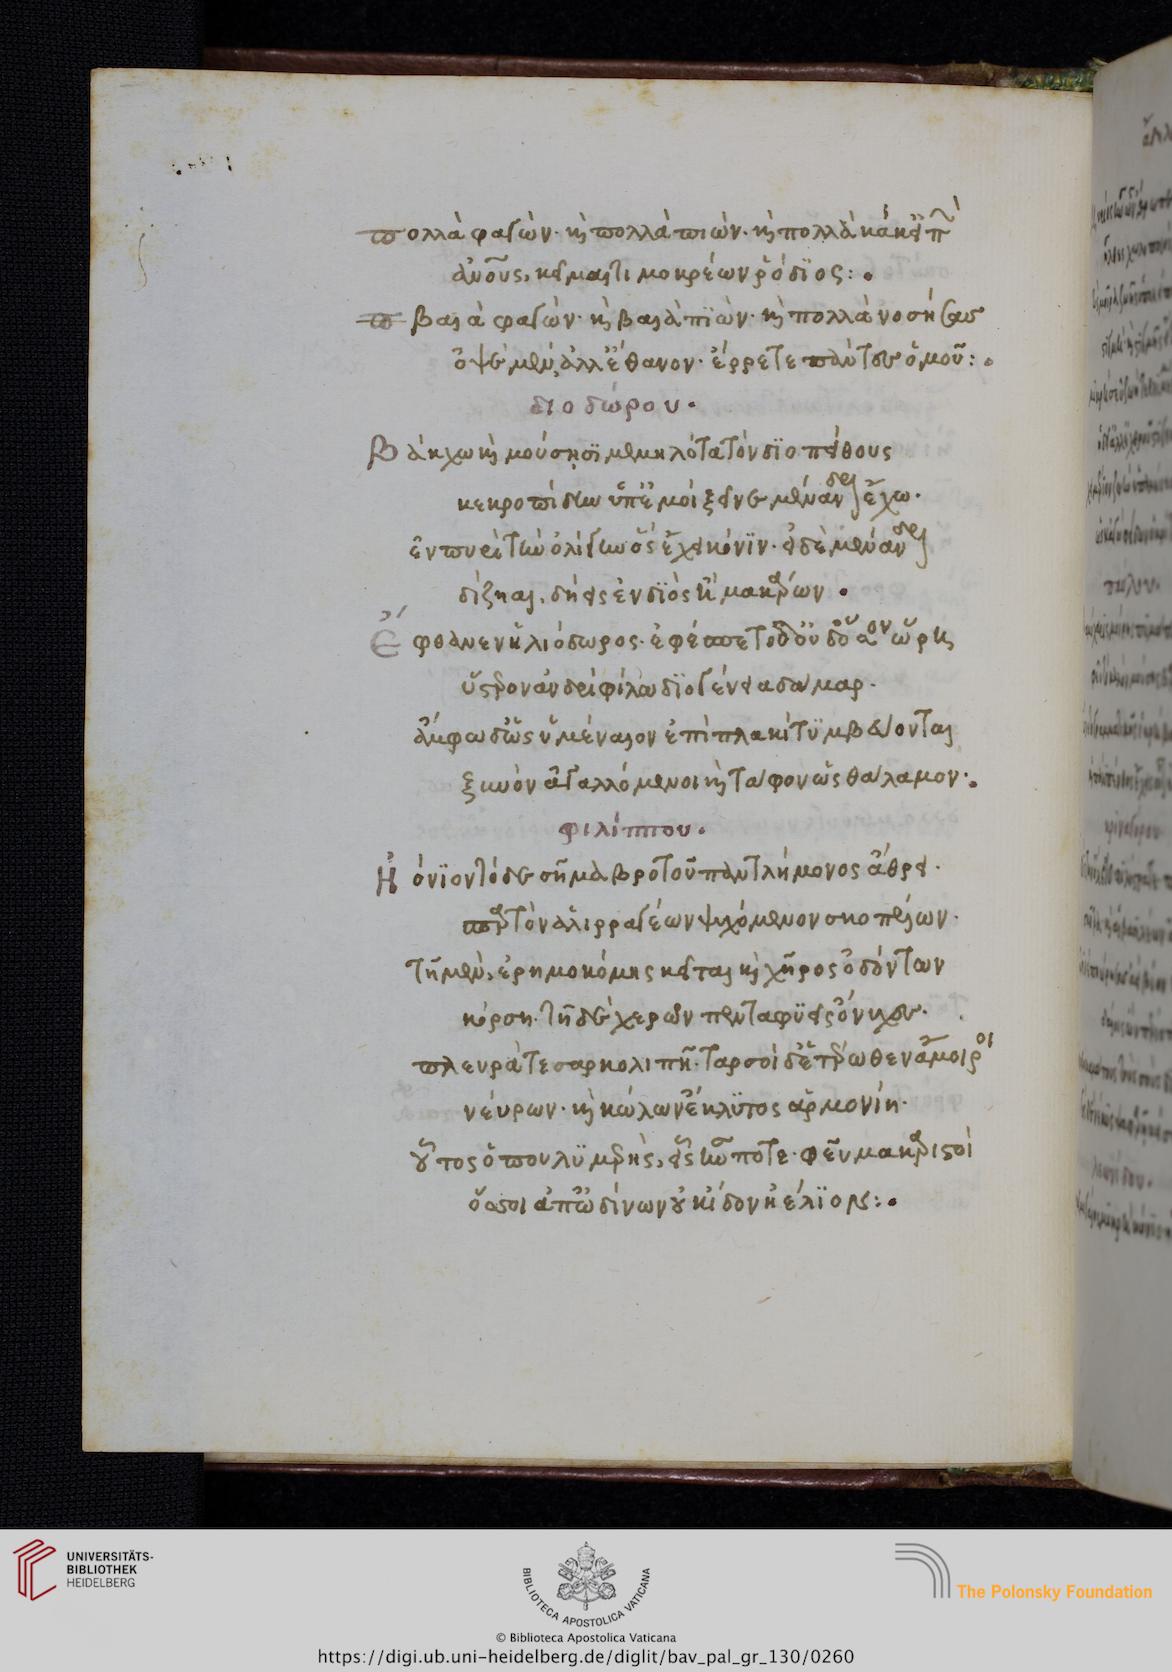 πολλὰ φαγὼν· καὶ πολλὰ πιὼν· καὶ πολλὰ κάκ' εἰπὼν
ἀν̓οὺς, κεῖμαι τιμοκρέων ῥόδϊος:·
βαιὰ φαγὼν· καὶ βαιὰ πϊὼν· καὶ πολλὰ νοσήσας
ὀψὲ μὲν ἀλλ' ἔθανον· ἔρρετε πάντες ὁμοῦ:·
διοδώρου·
Βάκχω καὶ μούσησϊ μεμηλότα τὸν δϊοπείθους
κεκροπίδην ὑπ' ἐμοὶ ξεῖνε μένανδρον ἔχω·
ἐν πυρὶ τὴν ὀλίγην ὃς ἔχει κόνϊν· εἰ δὲ μένανδρον
δίζηαι, δήεις ἐν διὸς ἢ μακάρων·
Ἔφθανεν ἡλιόδωρος· ἐφέσπετο δ' οὐδ' ὅσον ὥρης
ὕστερον ἀνδρὶ φίλω διογένεια δάμαρ·
ἄμφω δ' ὡς ὑμέναιον ἐπὶ πλακὶ τϋμβεύονται
ξυνὸν ἀγαλλόμενοι καὶ τάφον ὡς θάλαμον·
φιλίππου·
Ἠόνϊον τόδε σῆμα βροτοῦ παντλήμονος ἄθρει·
παρ τὸν ἁλιρραγέων ψυχόμενον σκοπέλων·
τῆ μὲν, ἐρημοκόμης κεῖται καὶ χῆρος ὀδόντων
κόρση· τῆ δὲ χερῶν πενταφϋεῖς ὄνυχες·
πλευρά τε σαρκολιπῆ· ταρσοὶ δ' ἑτέρωθεν ἄμοιροι
νεύρων· καὶ κώλων ἔκλϋτος ἁρμονίη·
οὗτος ὁ πουλϋμερὴς, εἷς ἦν ποτε· φεῦ μακαριστοὶ
ὅσσοι ἀπ' ὠδίνων οὐκ ἴδον ἠέλϊον:·
UNIVERSITÄTS-
BIBLIOTHEK
HEIDELBERG
BIBLIOTECA APOSTOLICA VATICANA
The Polonsky Foundation
© Biblioteca Apostolica Vaticana
https://digi.ub.uni-heidelberg.de/diglit/bav_pal_gr_130/0260